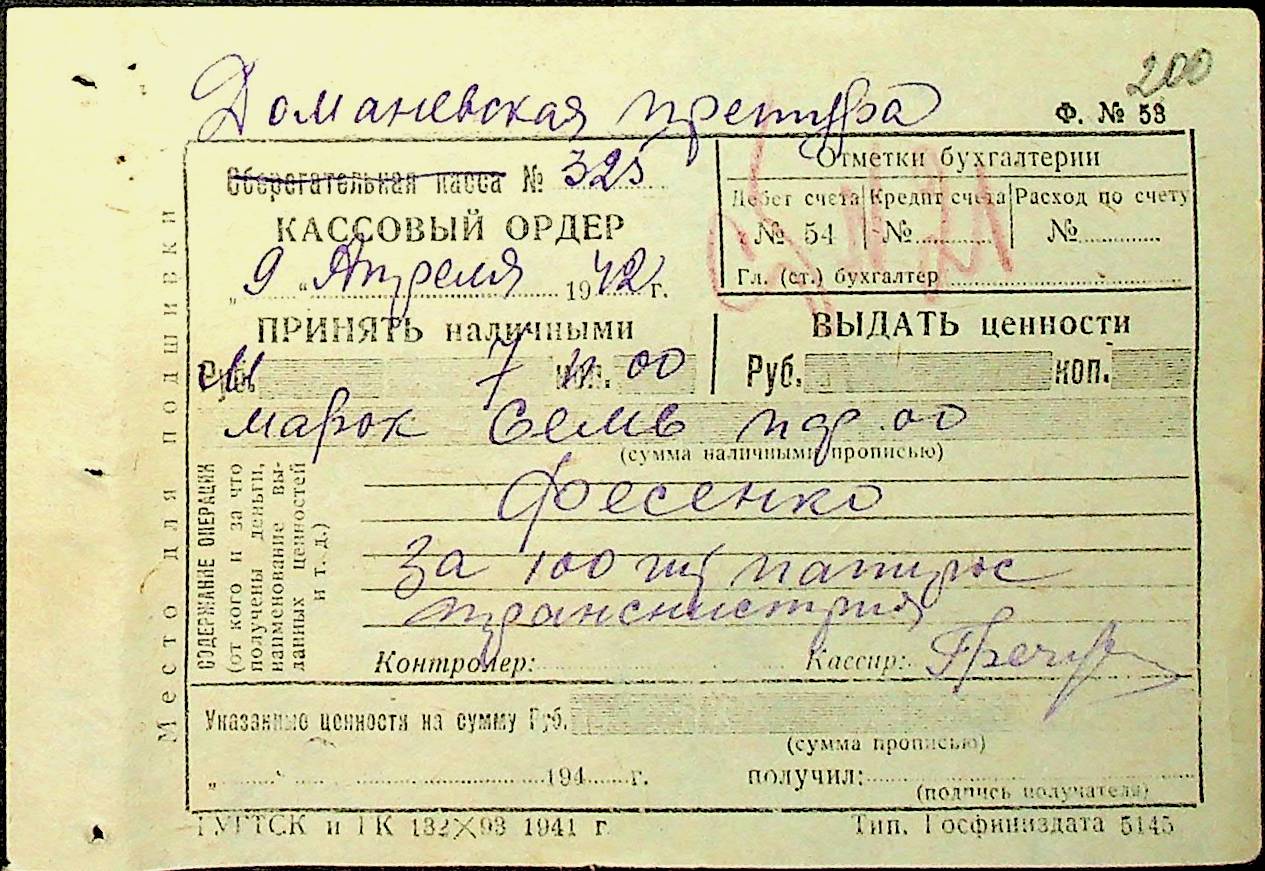 200
Доманевская претура
Ф. № 58
Сберегательная касса № 325
КАССОВЫЙ ОРДЕР
„ 9 “ Апреля 1942 г.
Отметки бухгалтерии
Дебет счета Кредит счета Расход по счету
№ 54 № №
Гл. (ст.) бухгалтер
ПРИНЯТЬ наличными
Руб. 7 коп. 00
ВЫДАТЬ ценности
Руб. коп.
марок Семь пф. 00
(сумма наличными прописью)
Место для подшивки
СОДЕРЖАНИЕ ОПЕРАЦИИ
(от кого и за что
получены деньги,
наименование вы-
данных ценностей
и т. д.)
Фесенко
За 100 шт папирос
транснистрия
Контролер: Кассир:
Указанные ценности на сумму Руб.
(сумма прописью)
„ “ 194 г.
получил:
(подпись получателя)
ГУГТСК и ГК 132×93 1941 г
Тип. Госфиниздата 5145